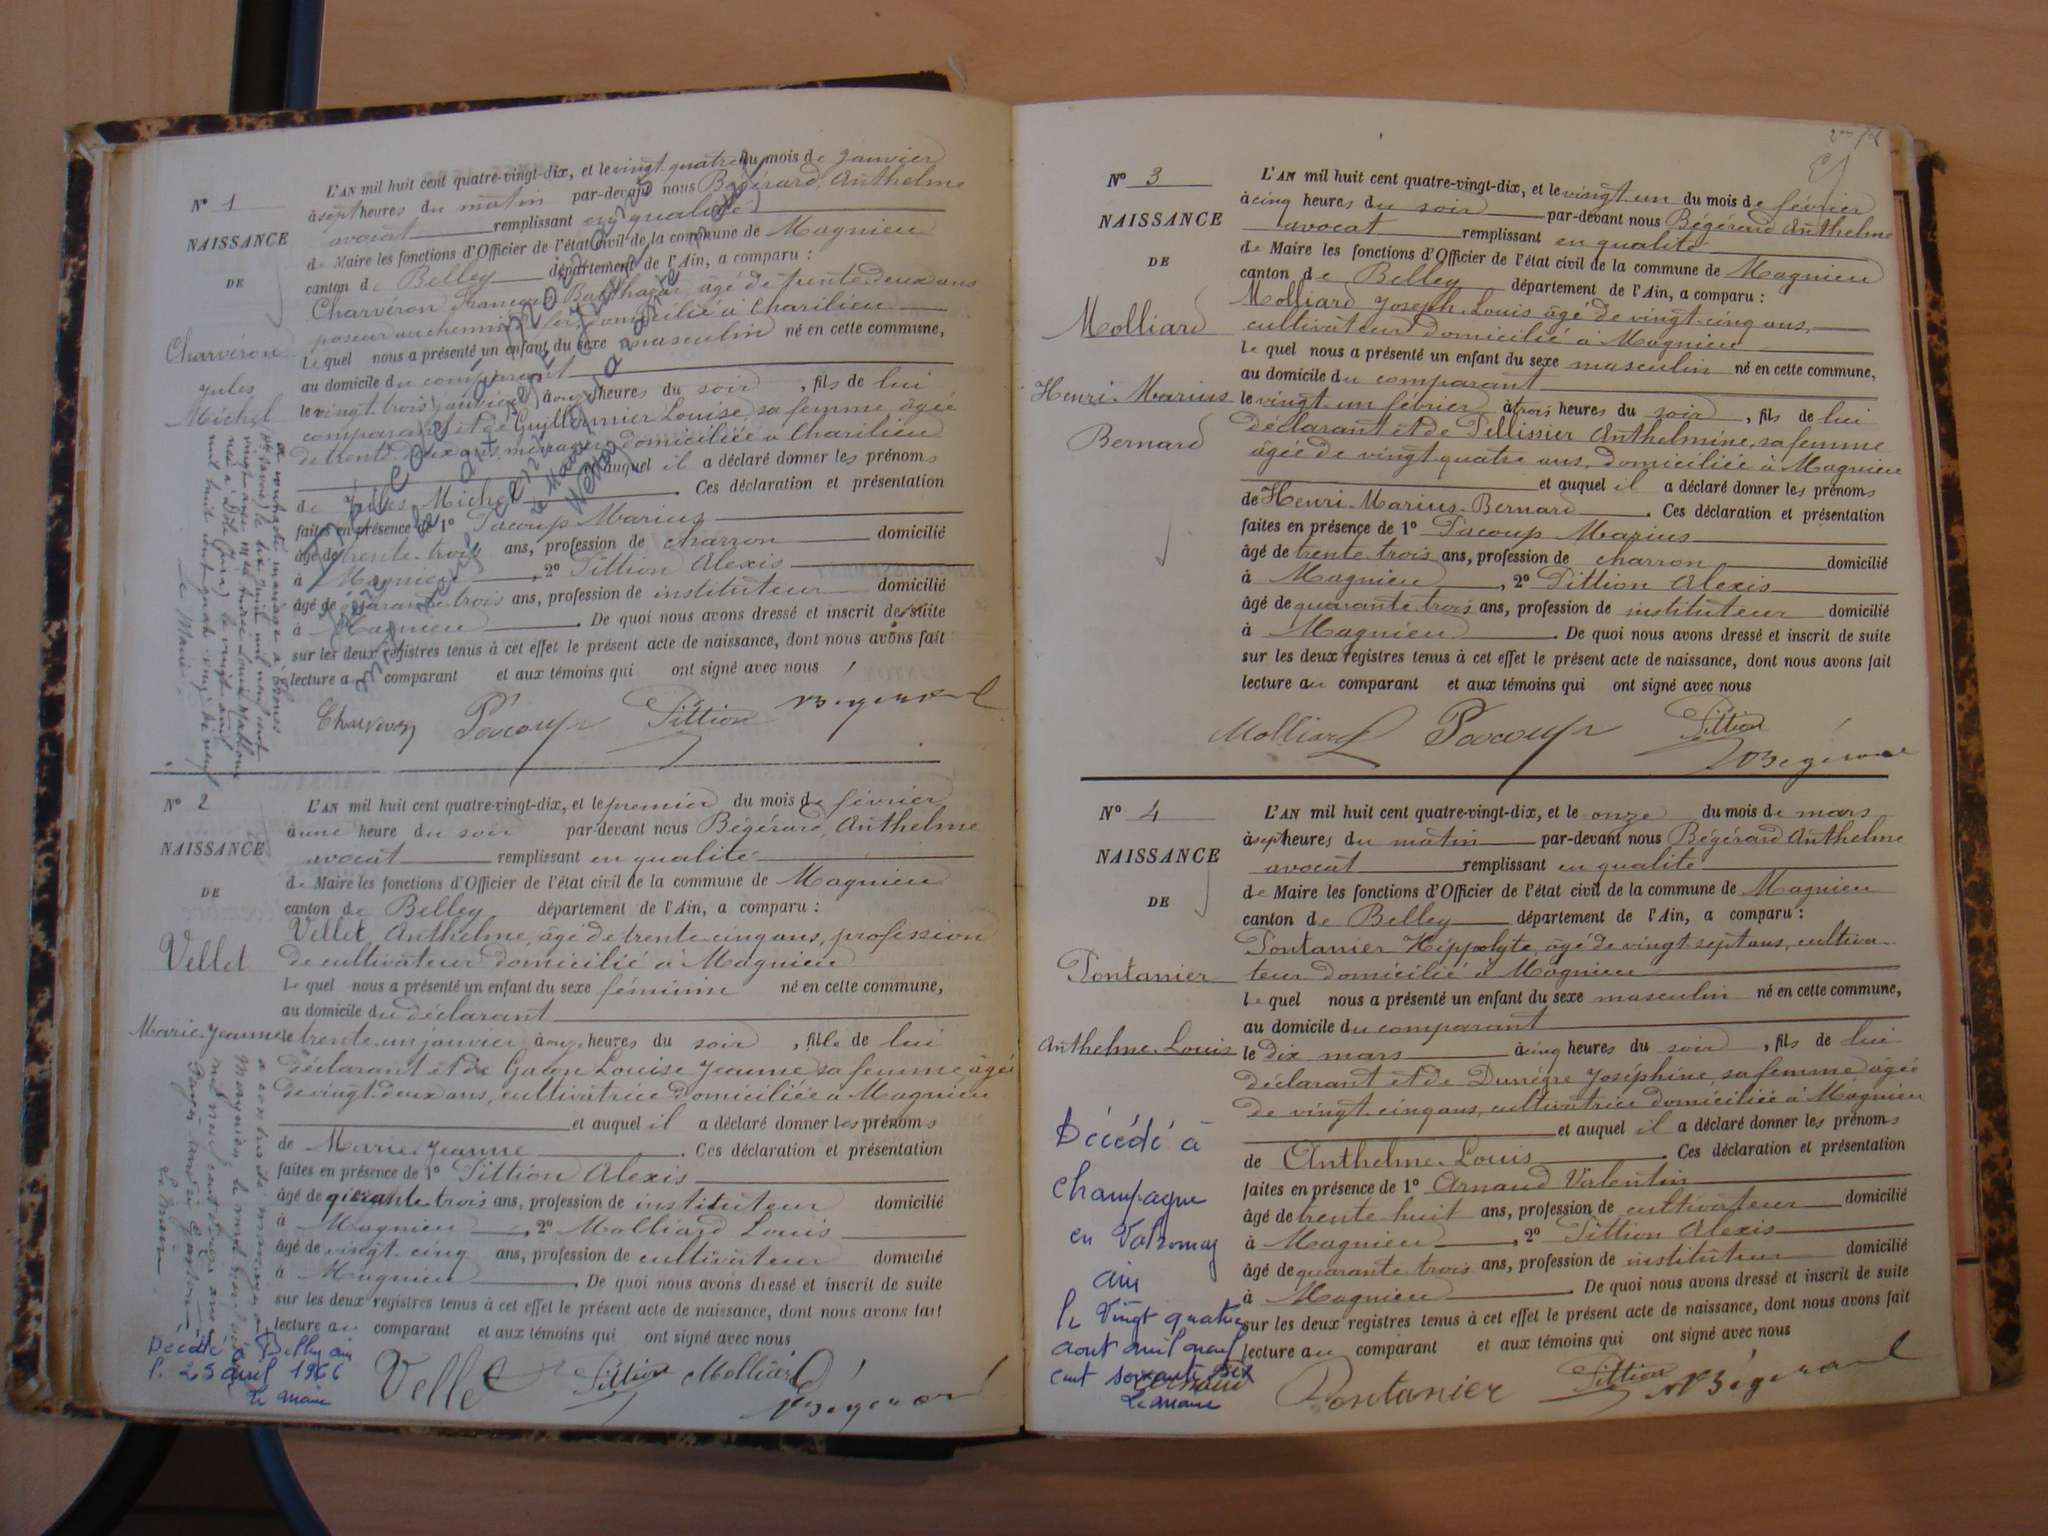 N° 1
NAISSANCE
DE
Charvéron
Jules
Michel
L'AN mil huit cent quatre-vingt-dix, et le vingt quatre du mois de janvier
à sept heures du matin par-devant nous Bégérard, Anthelme
avocat remplissant en qualité
de Maire les fonctions d'Officier de l'état civil de la commune de Magnieu
canton de Belley département de l'Ain, a comparu :
Charvéron François Balthazar, âgé de trente deux ans
poseur au chemin de fer domicilié à Charilieu
Lequel nous a présenté un enfant du sexe masculin né en cette commune,
au domicile du comparant
le vingt trois janvier à onze heures du soir, fils de lui
comparant et de Guillermier Louise, sa femme, âgée
de trente deux ans, ménagère domiciliée à Charilieu
auquel il a déclaré donner les prénoms
de Jules Michel. Ces déclaration et présentation
faites en présence de 1° Pacoup Marius
âgé de trente trois ans, profession de charron domicilié
à Magnieu, 2° Pittion Alexis
âgé de quarante trois ans, profession de instituteur domicilié
à Magnieu. De quoi nous avons dressé et inscrit de suite
sur les deux registres tenus à cet effet le présent acte de naissance, dont nous avons fait
lecture au comparant et aux témoins qui ont signé avec nous
Charveron Pacoup Pittion Bégérard
a contracté mariage à
le dix juin mil neuf cent
vingt
née à Dôle (Jura) le vingt août
mil huit cent quatre vingt dix neuf
Le Maire
N° 2
NAISSANCE
DE
Vellet
Marie Jeanne
L'AN mil huit cent quatre-vingt-dix, et le premier du mois de février
à une heure du soir par-devant nous Bégérard, Anthelme
avocat remplissant en qualité
de Maire les fonctions d'Officier de l'état civil de la commune de Magnieu
canton de Belley département de l'Ain, a comparu :
Vellet Anthelme, âgé de trente cinq ans, profession
de cultivateur domicilié à Magnieu
Lequel nous a présenté un enfant du sexe féminin né en cette commune,
au domicile du déclarant
le trente un janvier, à onze heures du soir, fille de lui
déclarant et de Guyon Louise Jeanne sa femme âgée
de vingt deux ans, cultivatrice domiciliée à Magnieu
et auquel il a déclaré donner les prénoms
de Marie Jeanne. Ces déclaration et présentation
faites en présence de 1° Pittion Alexis
âgé de quarante trois ans, profession de instituteur domicilié
à Magnieu, 2° Molliard Louis
âgé de vingt cinq ans, profession de cultivateur domicilié
à Magnieu. De quoi nous avons dressé et inscrit de suite
sur les deux registres tenus à cet effet le présent acte de naissance, dont nous avons fait
lecture au comparant et aux témoins qui ont signé avec nous
a contracté mariage à
Magnieu le
mil neuf cent
Le Maire
Décédée à Belley ain
le 25 avril 1966
Le maire
Vellet Pittion Molliard Bégérard
N° 3
NAISSANCE
DE
Molliard
Henri Marius
Bernard
L'AN mil huit cent quatre-vingt-dix, et le vingt un du mois de février
à cinq heures du soir par-devant nous Bégérard Anthelme
avocat remplissant en qualité
de Maire les fonctions d'Officier de l'état civil de la commune de Magnieu
canton de Belley département de l'Ain, a comparu :
Molliard Joseph Louis âgé de vingt cinq ans,
cultivateur domicilié à Magnieu
Lequel nous a présenté un enfant du sexe masculin né en cette commune,
au domicile du comparant
le vingt un février à trois heures du soir, fils de lui
déclarant et de Pellissier Anthelmine, sa femme
âgée de vingt quatre ans, domiciliée à Magnieu
et auquel il a déclaré donner les prénoms
de Henri Marius Bernard. Ces déclaration et présentation
faites en présence de 1° Pacoup Marius
âgé de trente trois ans, profession de charron domicilié
à Magnieu, 2° Pittion Alexis
âgé de quarante trois ans, profession de instituteur domicilié
à Magnieu. De quoi nous avons dressé et inscrit de suite
sur les deux registres tenus à cet effet le présent acte de naissance, dont nous avons fait
lecture au comparant et aux témoins qui ont signé avec nous
Molliard L Pacoup Pittion Bégérard
N° 4
NAISSANCE
DE
Pontanier
Anthelme Louis
L'AN mil huit cent quatre-vingt-dix, et le onze du mois de mars
à sept heures du matin par-devant nous Bégérard Anthelme
avocat remplissant en qualité
de Maire les fonctions d'Officier de l'état civil de la commune de Magnieu
canton de Belley département de l'Ain, a comparu :
Pontanier Hippolyte, âgé de vingt sept ans, cultiva-
teur domicilié à Magnieu
Lequel nous a présenté un enfant du sexe masculin né en cette commune,
au domicile du comparant
le dix mars à cinq heures du soir, fils de lui
déclarant et de Dunègre Joséphine, sa femme âgée
de vingt cinq ans, cultivatrice domiciliée à Magnieu
et auquel il a déclaré donner les prénoms
de Anthelme Louis. Ces déclaration et présentation
faites en présence de 1° Arnaud Valentin
âgé de trente huit ans, profession de cultivateur domicilié
à Magnieu, 2° Pittion Alexis
âgé de quarante trois ans, profession de instituteur domicilié
à Magnieu. De quoi nous avons dressé et inscrit de suite
sur les deux registres tenus à cet effet le présent acte de naissance, dont nous avons fait
lecture au comparant et aux témoins qui ont signé avec nous
Décédé à
Champagne
en Valromey
ain
le vingt quatre
aout mil neuf
cent soixante dix
Le maire
Arnaud Pontanier Pittion Bégérard